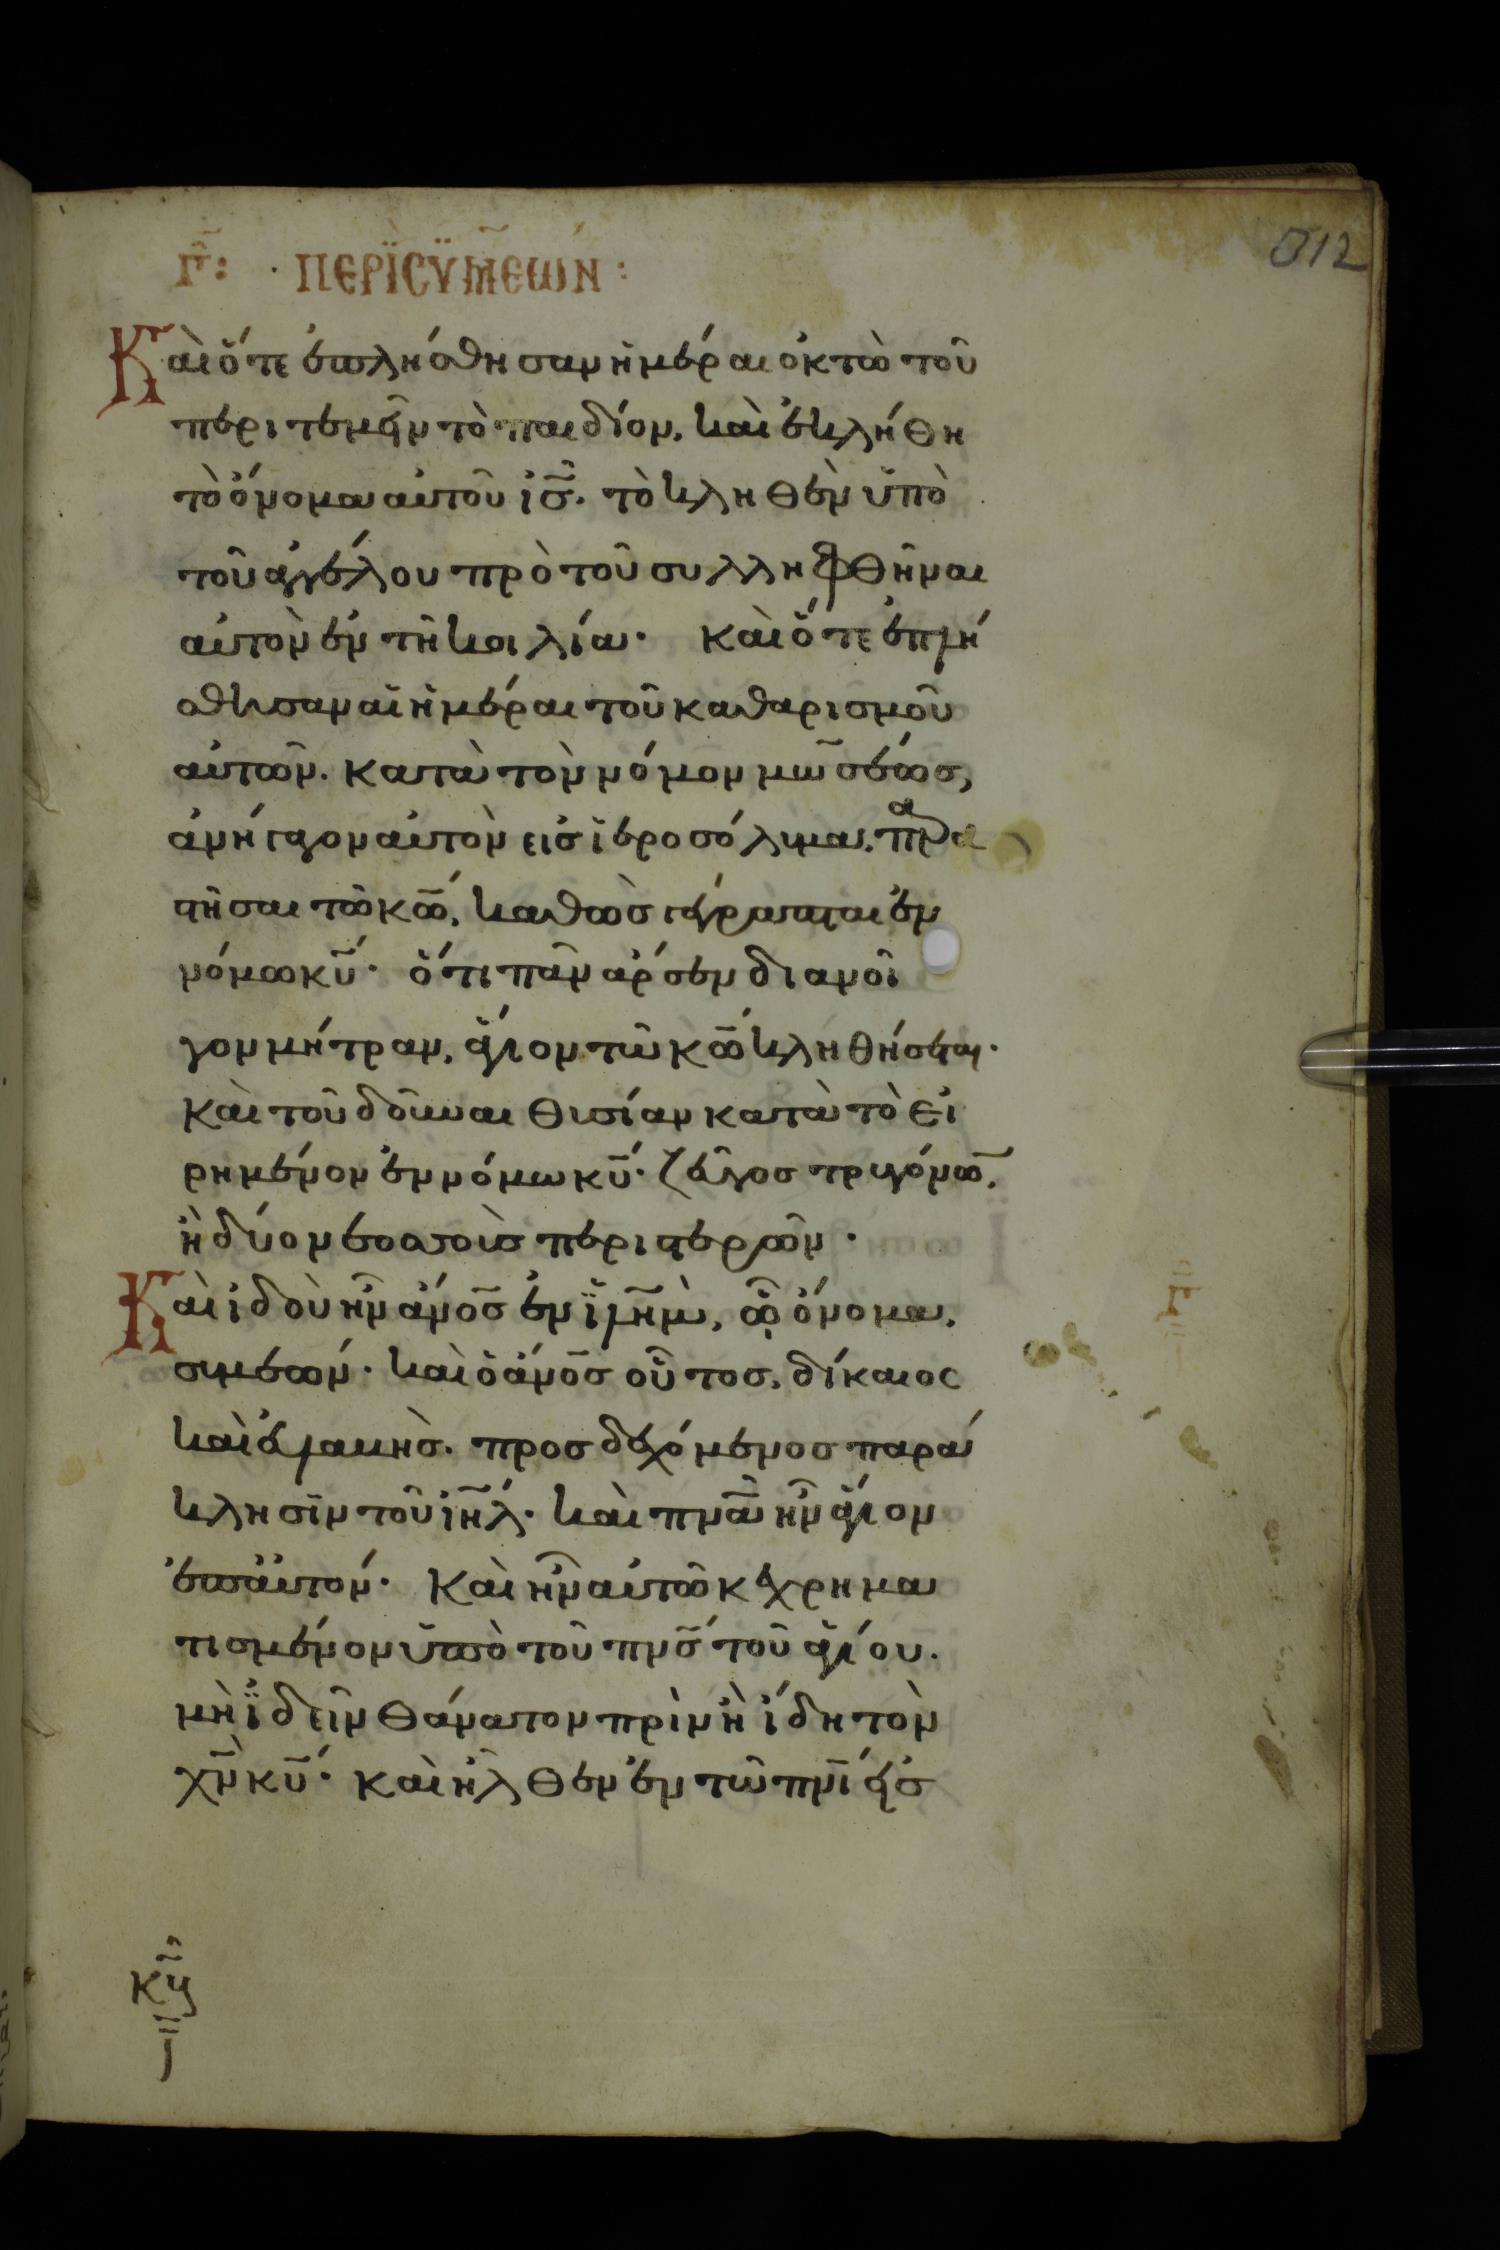 012
Γ: · ΠΕΡΪ ΣΥΜΕΩΝ:
Καὶ ὅτε ἐπλήσθησαν ἡμέραι ὀκτὼ τοῦ
περιτεμεῖν τὸ παιδίον. καὶ ἐκλήθη
τὸ ὄνομα αὐτοῦ ι̅ς̅. τὸ κληθὲν ὑπὸ
τοῦ ἀγγέλου πρὸ τοῦ συλληφθῆναι
αὐτὸν ἐν τῇ κοιλία· Καὶ ὅτε ἐπλή
σθησαν αἱ ἡμέραι τοῦ καθαρισμοῦ
αὐτῶν. κατὰ τὸν νόμον μωσέως,
ἀνήγαγον αὐτὸν εἰς ἱεροσόλυμα. παρα
στῆσαι τῶ κ̅ω̅, καθὼς γέγραπται ἐν
νόμω κ̅υ̅· ὅτι πᾶν ἄρσεν διανοῖ
γον μήτραν, ἅγιον τῶ κ̅ω̅ κληθήσεται·
καὶ τοῦ δοῦναι θυσίαν κατὰ τὸ εἰ
ρημένον ἐν νόμω κ̅υ̅· ζεῦγος τρυγόνω̅,
ἢ δύο νεοσσοὺς περιστερῶν·
Καὶ ἰδοὺ ἦν α̅ν̅ο̅ς̅ ἐν ϊ̅λ̅η̅μ̅, ὧ ὄνομα.
συμεών· καὶ ὁ α̅ν̅ο̅ς̅ οὗτος. δίκαιος
καὶ εὐλαβὴς. προσδεχόμενος παρά
κλησιν τοῦ ι̅η̅λ̅· καὶ π̅ν̅α̅ ἦν ἅγιον
ἐπ' αὐτόν· Καὶ ἦν αὐτῶ κεχρημα
τισμένον ὑπὸ τοῦ π̅ν̅ς̅ τοῦ ἁγίου.
μὴ ϊδεῖν θάνατον πρὶν ἢ ἴδη τὸν
χ̅ν̅ κ̅υ̅· καὶ ἦλθεν ἐν τῶ π̅ν̅ι̅ εἰς